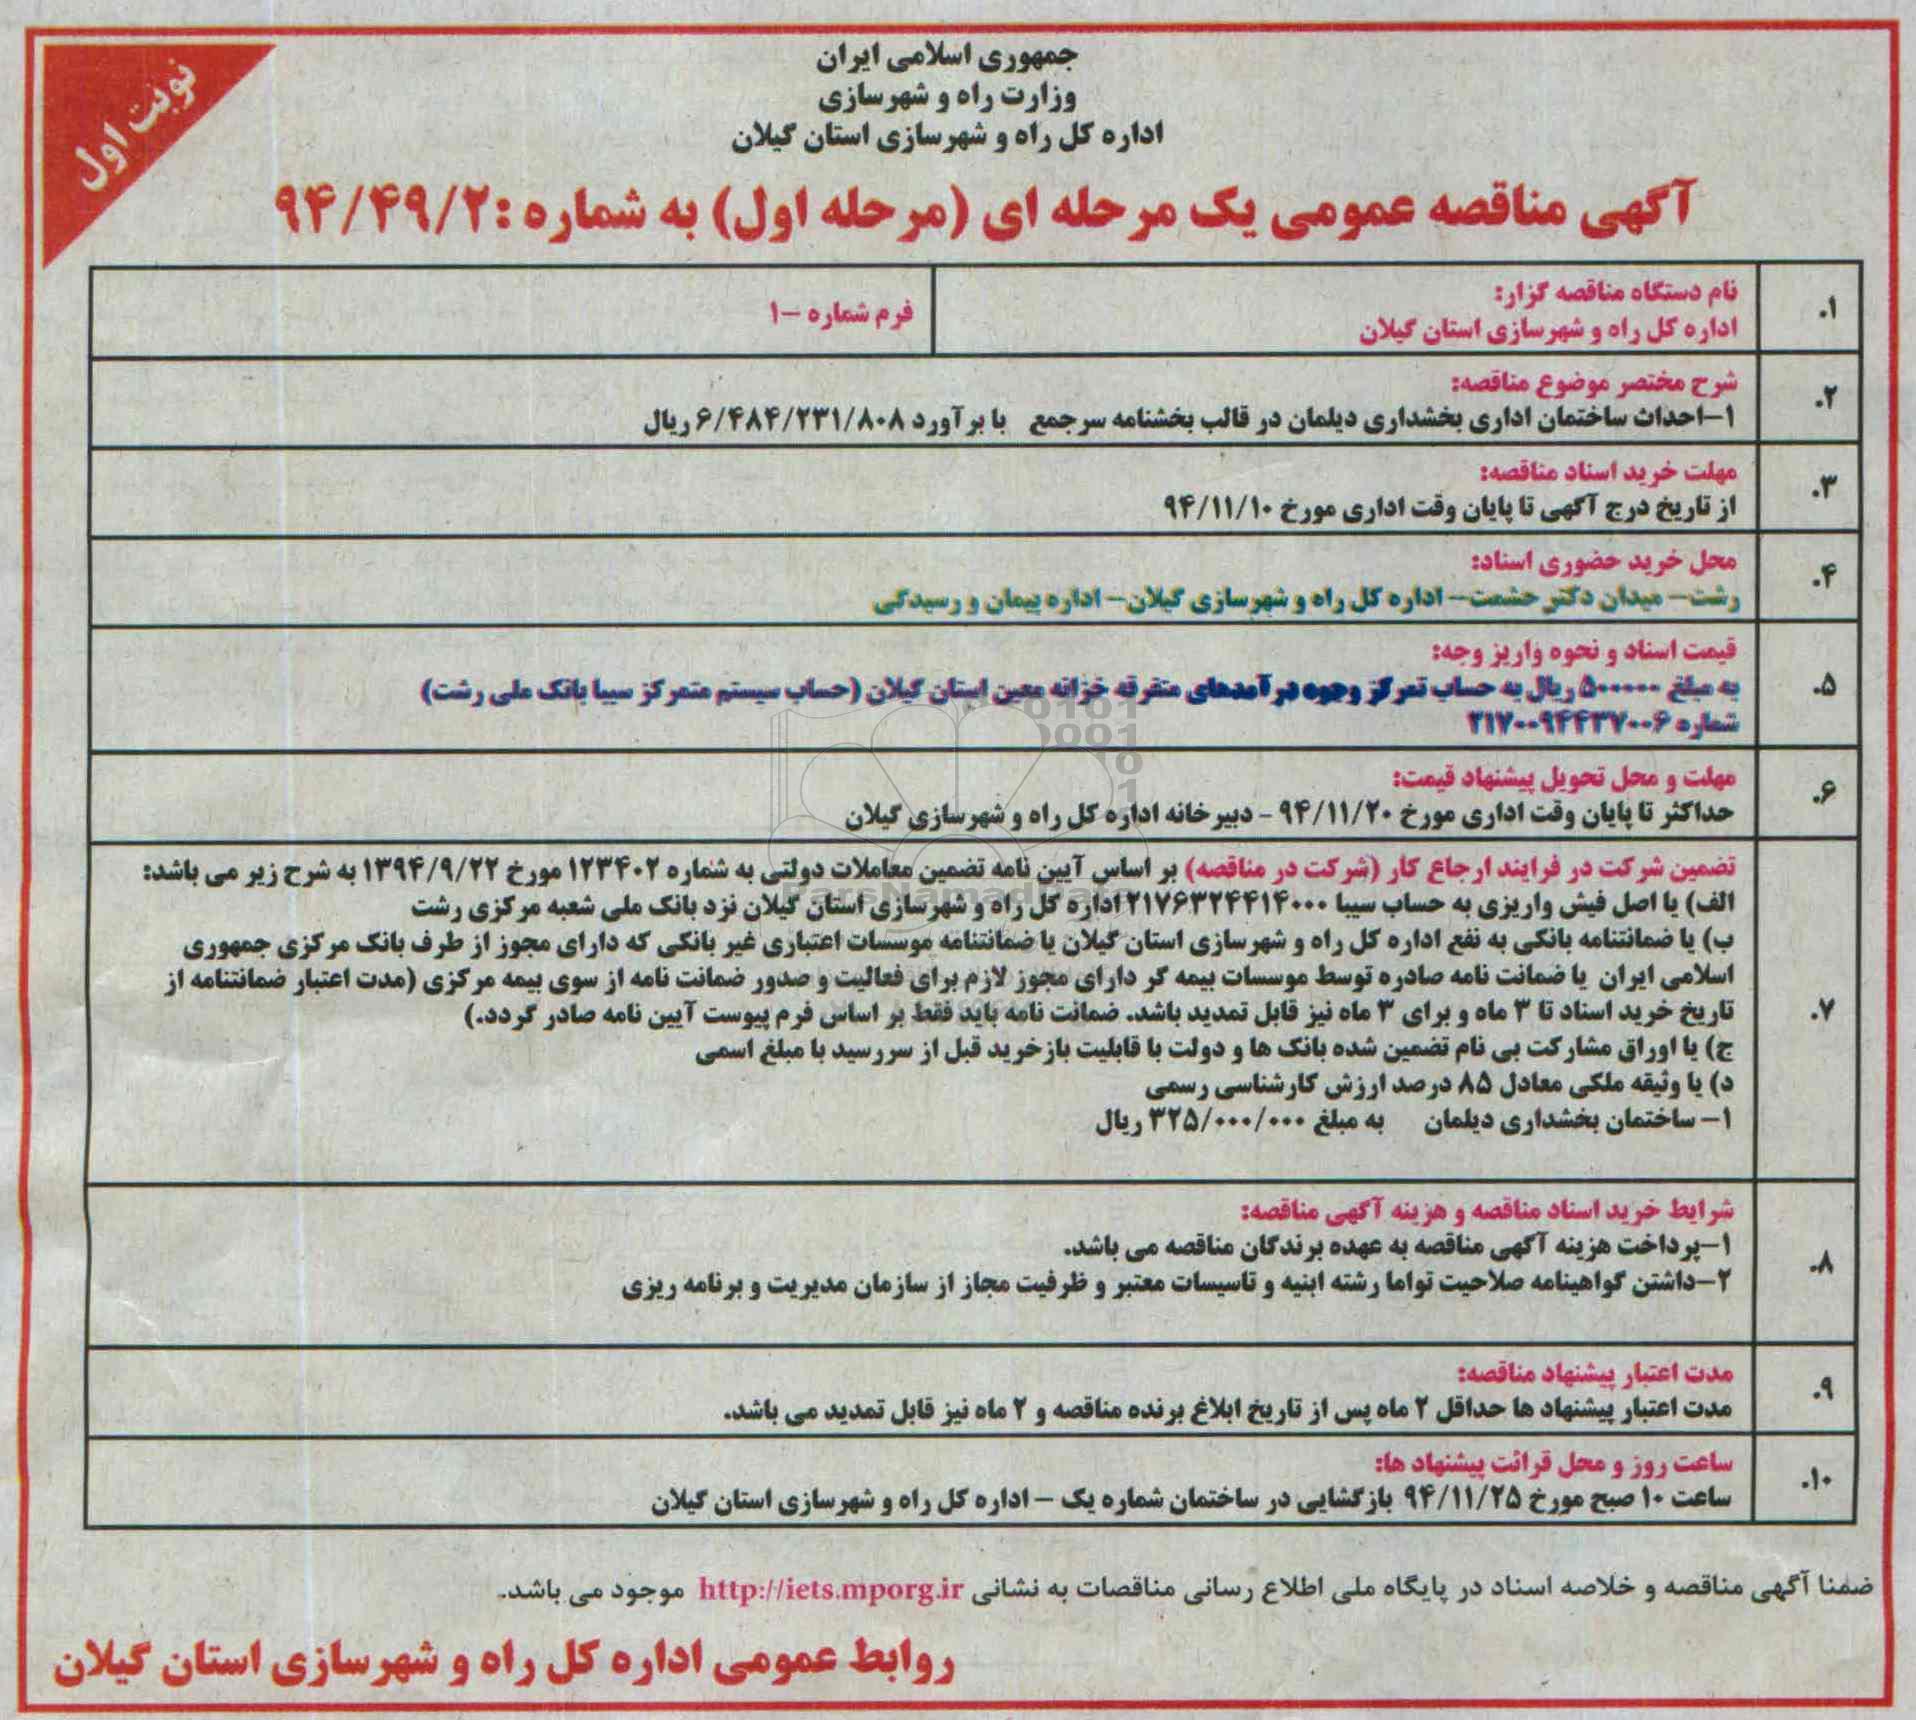 نوبت اول
جمهوری اسلامی ایران
وزارت راه و شهرسازی
اداره کل راه و شهرسازی استان گیلان
آگهی مناقصه عمومی یک مرحله ای (مرحله اول) به شماره :۹۴/۴۹/۲
۱.
نام دستگاه مناقصه گزار:
اداره کل راه و شهرسازی استان گیلان
فرم شماره –۱
۲.
شرح مختصر موضوع مناقصه:
۱–احداث ساختمان اداری بخشداری دیلمان در قالب بخشنامه سرجمع با برآورد ۶/۴۸۴/۲۳۱/۸۰۸ ریال
۳.
مهلت خرید اسناد مناقصه:
از تاریخ درج آگهی تا پایان وقت اداری مورخ ۹۴/۱۱/۱۰
۴.
محل خرید حضوری اسناد:
رشت– میدان دکتر حشمت– اداره کل راه و شهرسازی گیلان– اداره پیمان و رسیدگی
۵.
قیمت اسناد و نحوه واریز وجه:
به مبلغ ۵۰۰۰۰۰ ریال به حساب تمرکز وجوه درآمدهای متفرقه خزانه معین استان گیلان (حساب سیستم متمرکز سیبا بانک ملی رشت)
شماره ۲۱۷۰۰۹۴۴۳۷۰۰۶
۶.
مهلت و محل تحویل پیشنهاد قیمت:
حداکثر تا پایان وقت اداری مورخ ۹۴/۱۱/۲۰ – دبیرخانه اداره کل راه و شهرسازی گیلان
۷.
تضمین شرکت در فرایند ارجاع کار (شرکت در مناقصه) بر اساس آیین نامه تضمین معاملات دولتی به شماره ۱۲۳۴۰۲ مورخ ۱۳۹۴/۹/۲۲ به شرح زیر می باشد:
الف) یا اصل فیش واریزی به حساب سیبا ۲۱۷۶۳۲۴۴۱۴۰۰۰ اداره کل راه و شهرسازی استان گیلان نزد بانک ملی شعبه مرکزی رشت
ب) یا ضمانتنامه بانکی به نفع اداره کل راه و شهرسازی استان گیلان یا ضمانتنامه موسسات اعتباری غیر بانکی که دارای مجوز از طرف بانک مرکزی جمهوری
اسلامی ایران یا ضمانت نامه صادره توسط موسسات بیمه گر دارای مجوز لازم برای فعالیت و صدور ضمانت نامه از سوی بیمه مرکزی (مدت اعتبار ضمانتنامه از
تاریخ خرید اسناد تا ۳ ماه و برای ۳ ماه نیز قابل تمدید باشد. ضمانت نامه باید فقط بر اساس فرم پیوست آیین نامه صادر گردد.)
ج) یا اوراق مشارکت بی نام تضمین شده بانک ها و دولت با قابلیت بازخرید قبل از سررسید با مبلغ اسمی
د) یا وثیقه ملکی معادل ۸۵ درصد ارزش کارشناسی رسمی
۱– ساختمان بخشداری دیلمان به مبلغ ۳۲۵/۰۰۰/۰۰۰ ریال
۸.
شرایط خرید اسناد مناقصه و هزینه آگهی مناقصه:
۱–پرداخت هزینه آگهی مناقصه به عهده برندگان مناقصه می باشد.
۲–داشتن گواهینامه صلاحیت تواما رشته ابنیه و تاسیسات معتبر و ظرفیت مجاز از سازمان مدیریت و برنامه ریزی
۹.
مدت اعتبار پیشنهاد مناقصه:
مدت اعتبار پیشنهاد ها حداقل ۲ ماه پس از تاریخ ابلاغ برنده مناقصه و ۲ ماه نیز قابل تمدید می باشد.
۱۰.
ساعت روز و محل قرائت پیشنهاد ها:
ساعت ۱۰ صبح مورخ ۹۴/۱۱/۲۵ بازگشایی در ساختمان شماره یک – اداره کل راه و شهرسازی استان گیلان
ضمنا آگهی مناقصه و خلاصه اسناد در پایگاه ملی اطلاع رسانی مناقصات به نشانی http://iets.mporg.ir موجود می باشد.
روابط عمومی اداره کل راه و شهرسازی استان گیلان